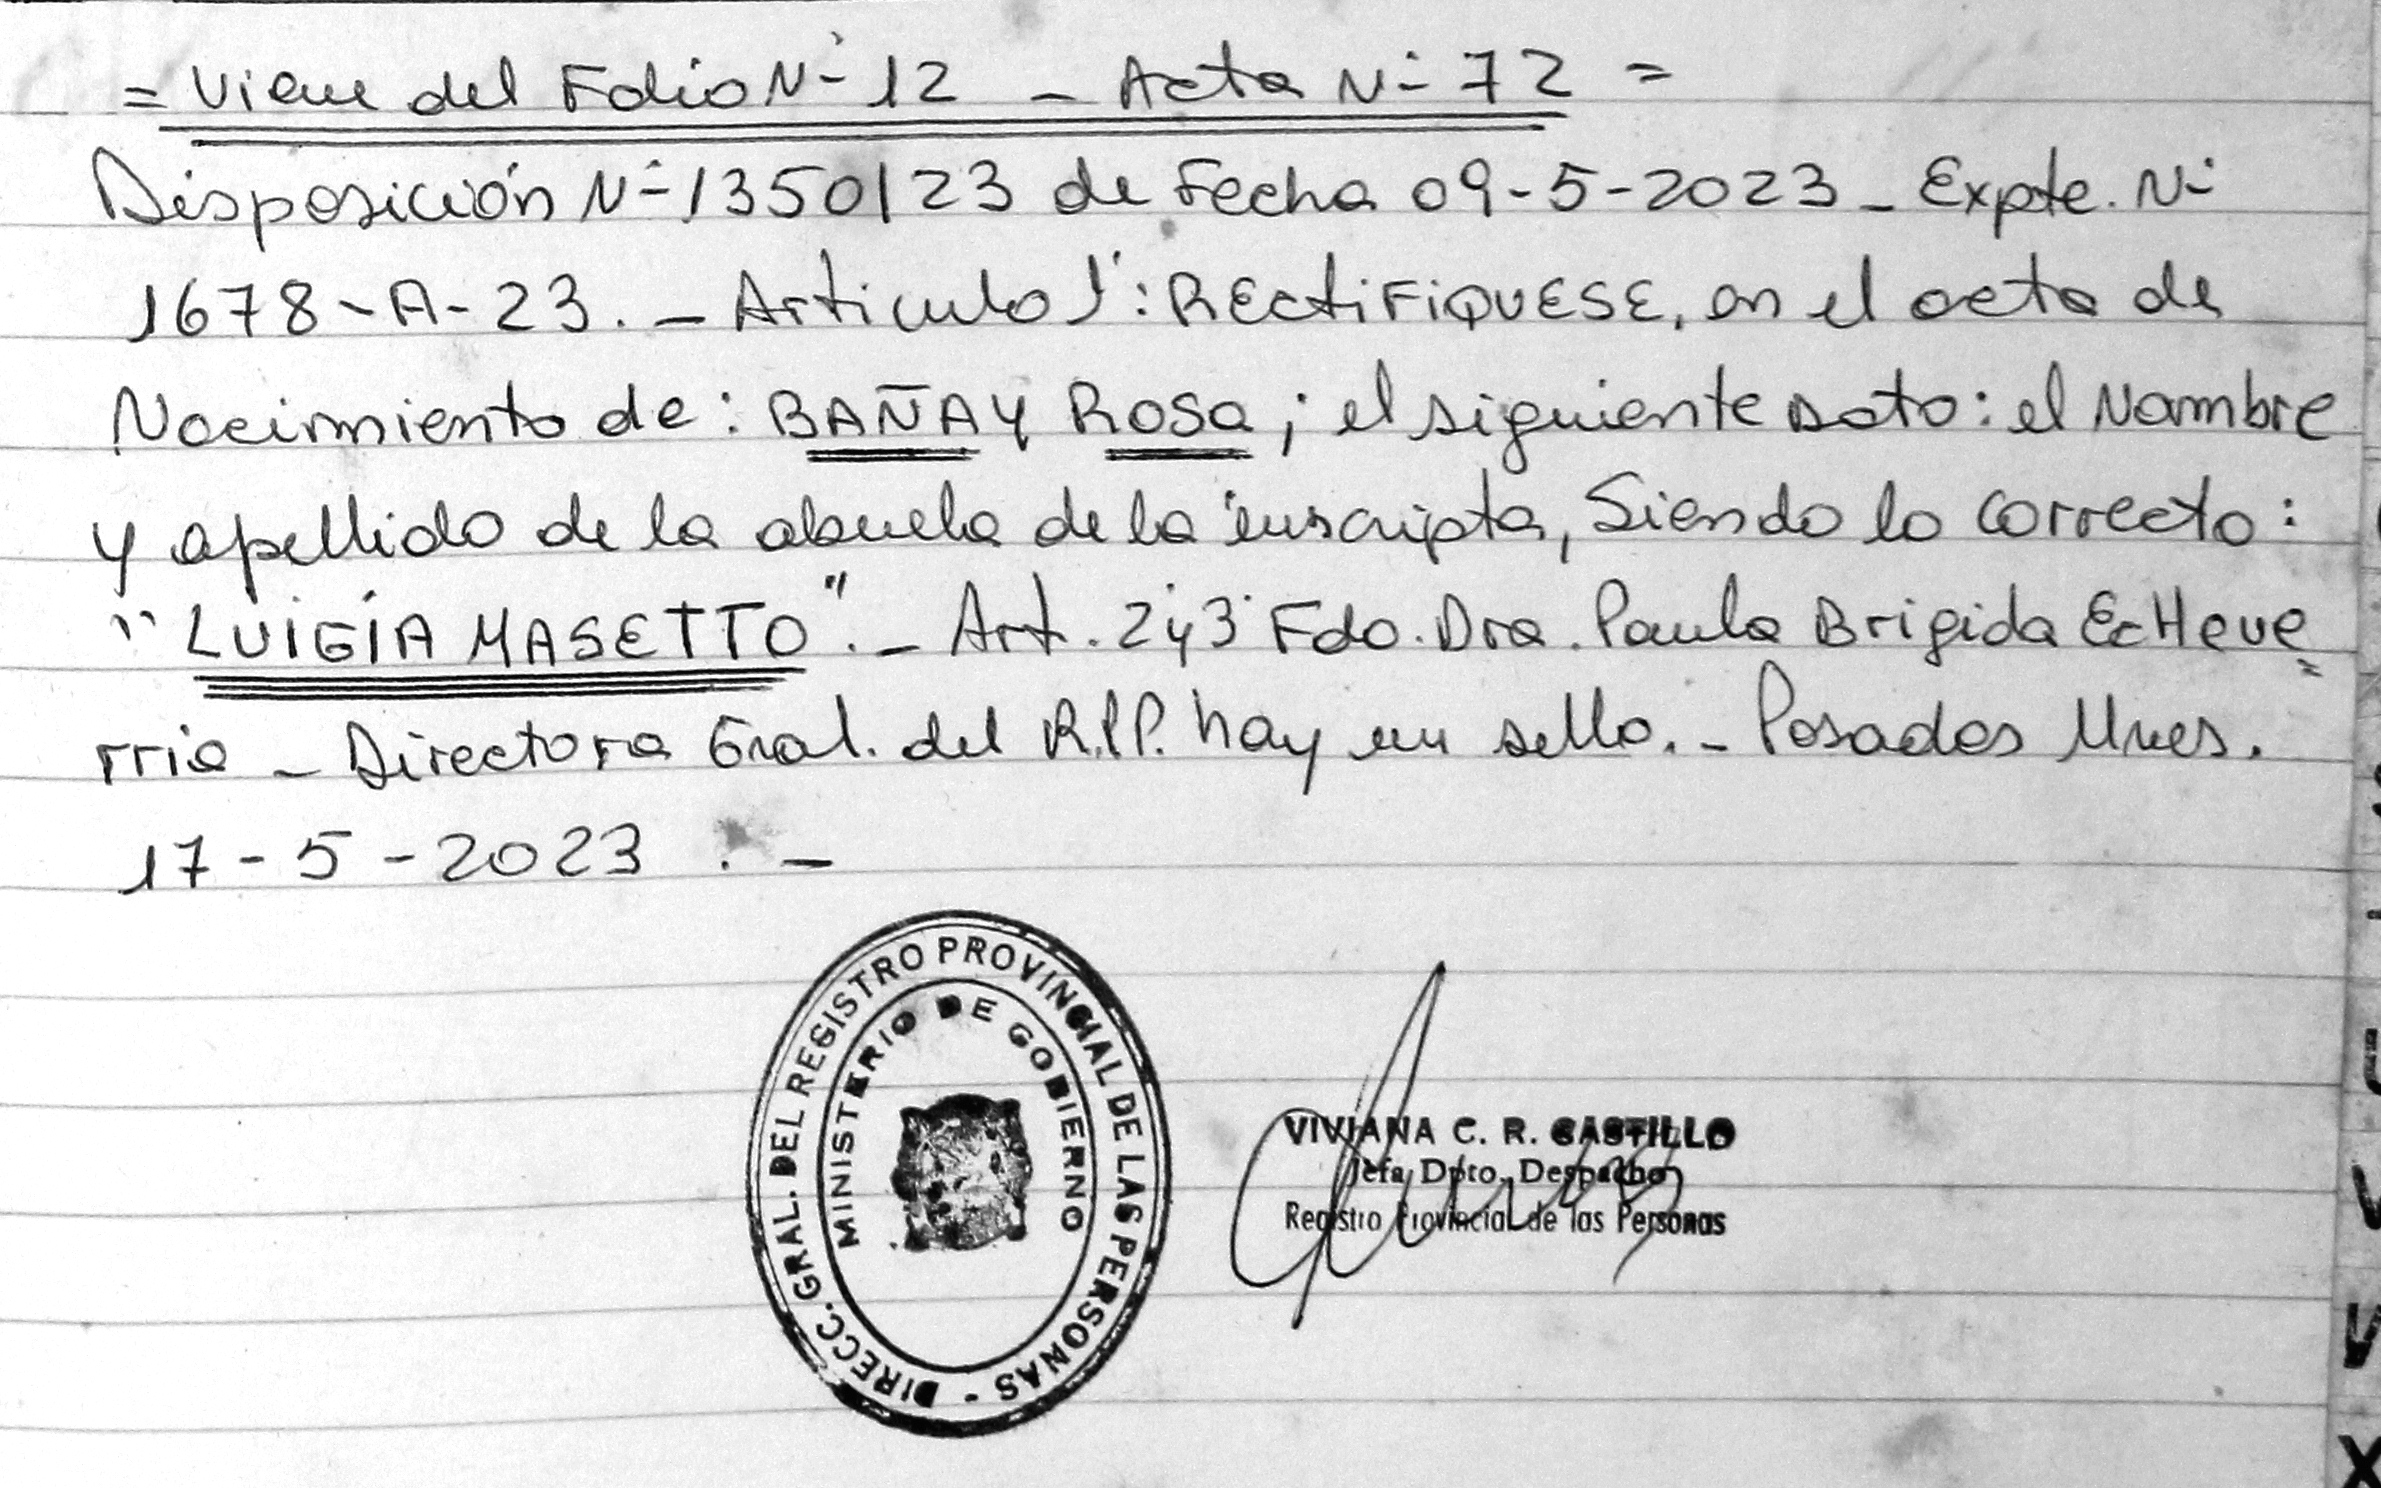 = Viene del Folio N° 12 - Acta N° 72 =
Disposición N° 1350/23 de Fecha 09-5-2023 - Expte. N°
1678-A-23. - Articulo 1°: RECtiFiQUESE, en el acta de
Nacimiento de: BAÑAY ROSA; el siguiente dato: el Nombre
y apellido de la abuela de la inscripta, Siendo lo correcto:
"LUIGIA MASETTO". - Art. 2° y 3° Fdo. Dra. Paula Brigida EcHeve=
rria - Directora Gral. del R.P.P. hay un sello. - Posadas Mnes.
17-5-2023 . -
DIRECC. GRAL. DEL REGISTRO PROVINCIAL DE LAS PERSONAS -
MINISTERIO DE GOBIERNO
VIVIANA C. R. CASTILLO
Jefa Dpto. Despacho
Registro Provincial de las Personas